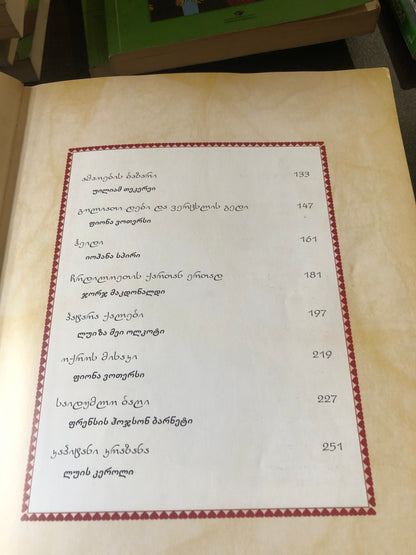 ამაოების ბაზარი 133
უილიამ თეკერეი
გოლიათი დები და ვერცხლის გედი 147
ფიონა ვოთერსი
ჰეიდი 161
იოჰანა სპირი
ჩრდილოეთის ქართან ერთად 181
ჯორჯ მაკდონალდი
პატარა ქალები 197
ლუიზა მეი ოლკოტი
ოქროს მისაკი 219
ფიონა ვოთერსი
საიდუმლო ბაღი 227
ფრენსის ჰოჯსონ ბარნეტი
კაპიტანი კრაზანა 251
ლუის კეროლი